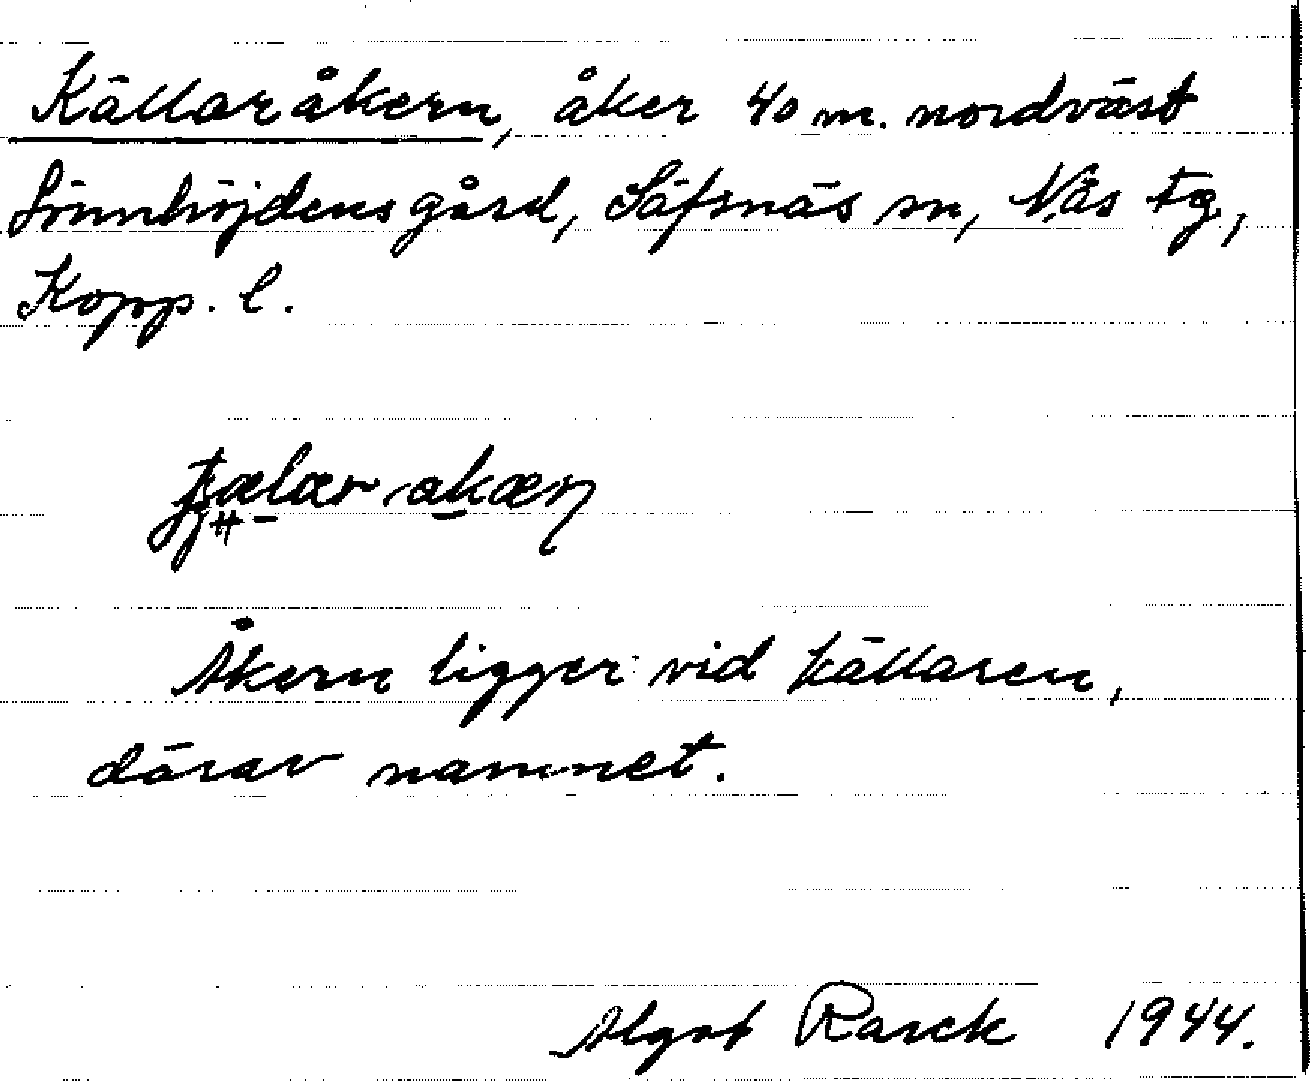 Källaråkern, åker 40 m. nordväst
Lönnhöjdens gård, Säfsnäs sn, Näs tg,
Kopp. l.
Åkern ligger vid källaren,
därav namnet.
Algot Rarck 1944.